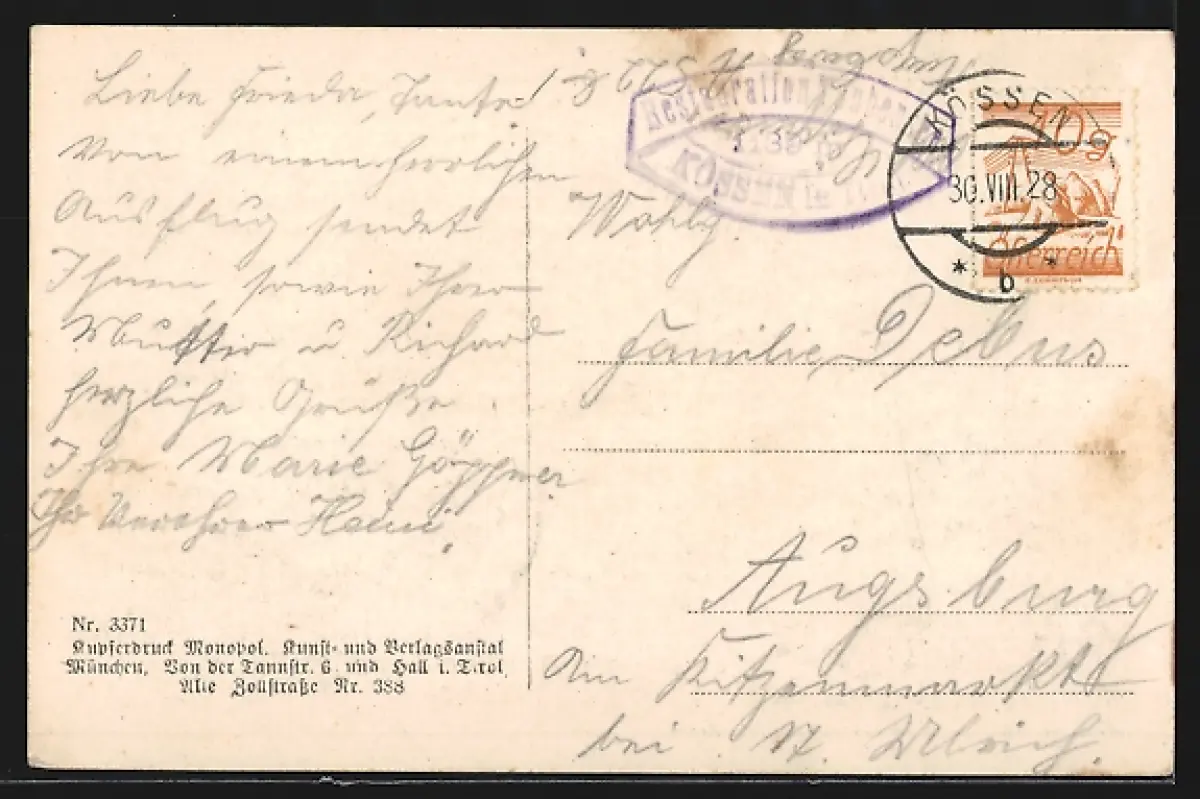 Liebe Frieda, Tante!
Von einem herrlichen
Ausflug sendet
Ihnen, sowie Ihrer
Mutter u Richard
herzliche Grüße
Ihre Marie Göppner
Ihr Verehrer Heini.
Nr. 3371
Kupferdruck Monopol. Kunst- und Verlagsanstal
München, Von der Tannstr. 6 und Hall i. Tirol
Alte Zollstraße Nr. 388
Restauration
KÖSSEN in
KÖSSEN
30.VIII.28
* b *
10g
Österreich
Wohlg.
Familie Debus
Augsburg
Am Kitzenmarkt
bei St. Ulrich.